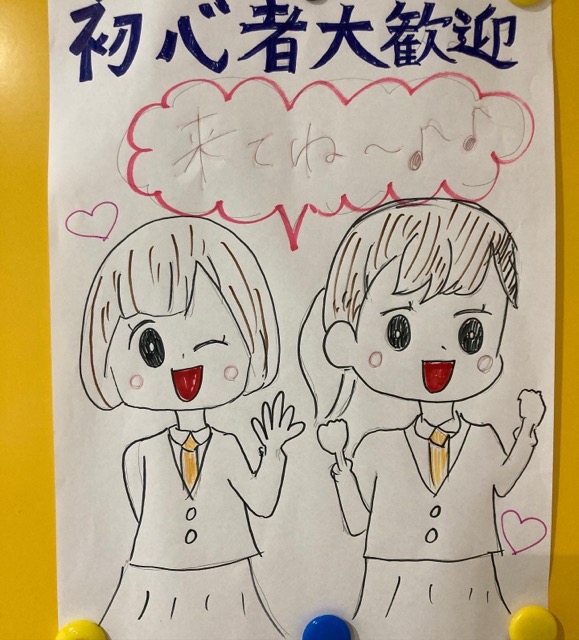 初心者大歓迎
来てね〜♪♪